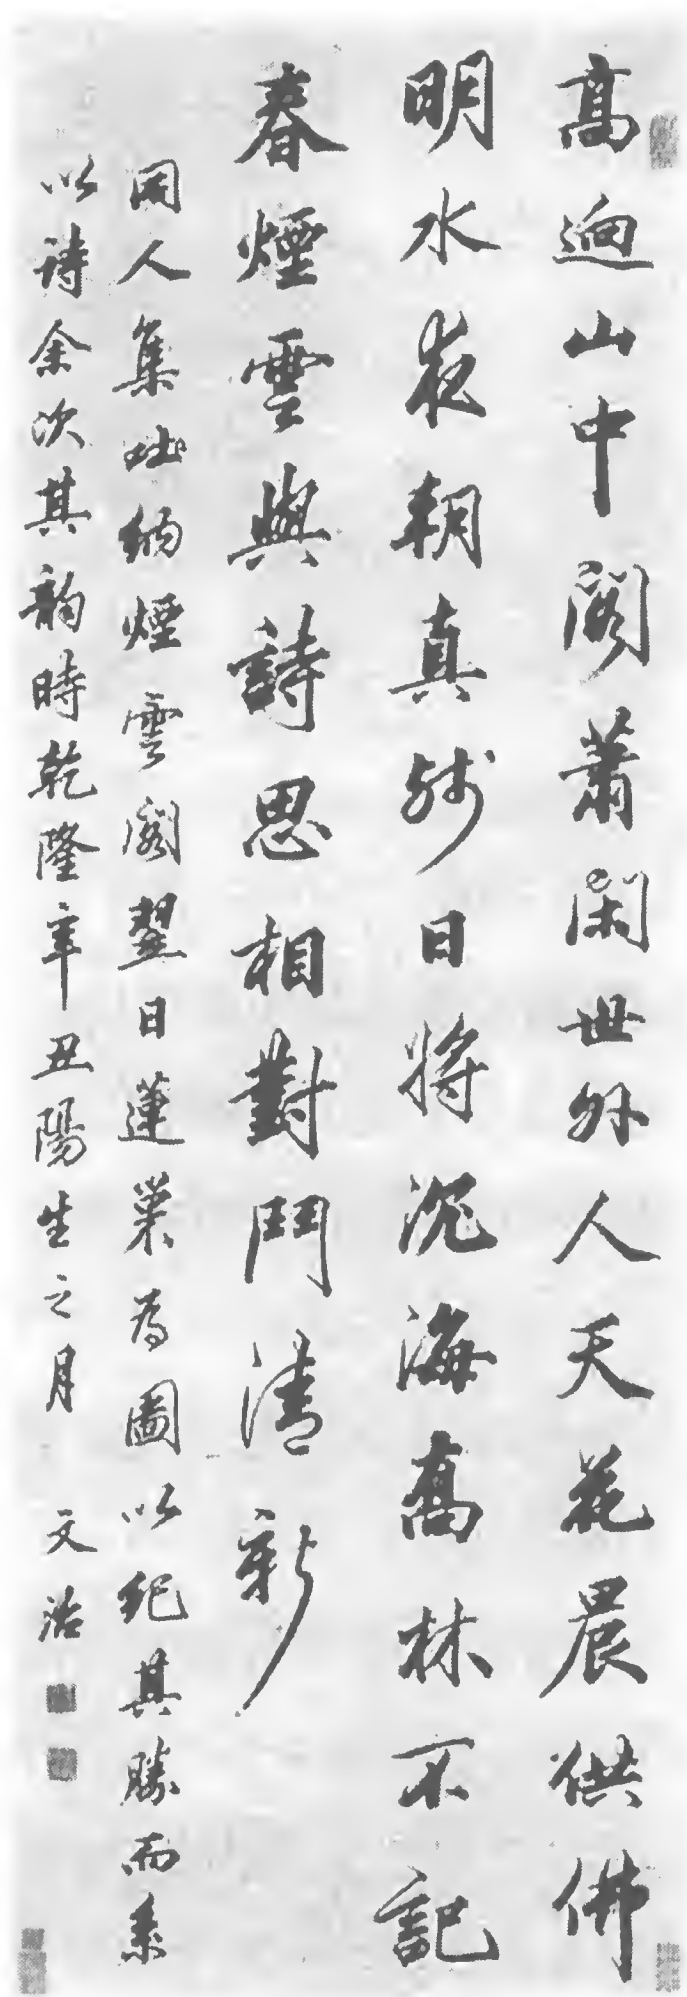 高迥山中閣蕭閑世外人天花晨供佛
明水夜朝真殘日將沉海高林不記
春煙雲與詩思相對鬥清新
同人集吐納煙雲閣翌日蓮巢為圖以紀其勝而系
以詩余次其韵時乾隆辛丑陽生之月 文治